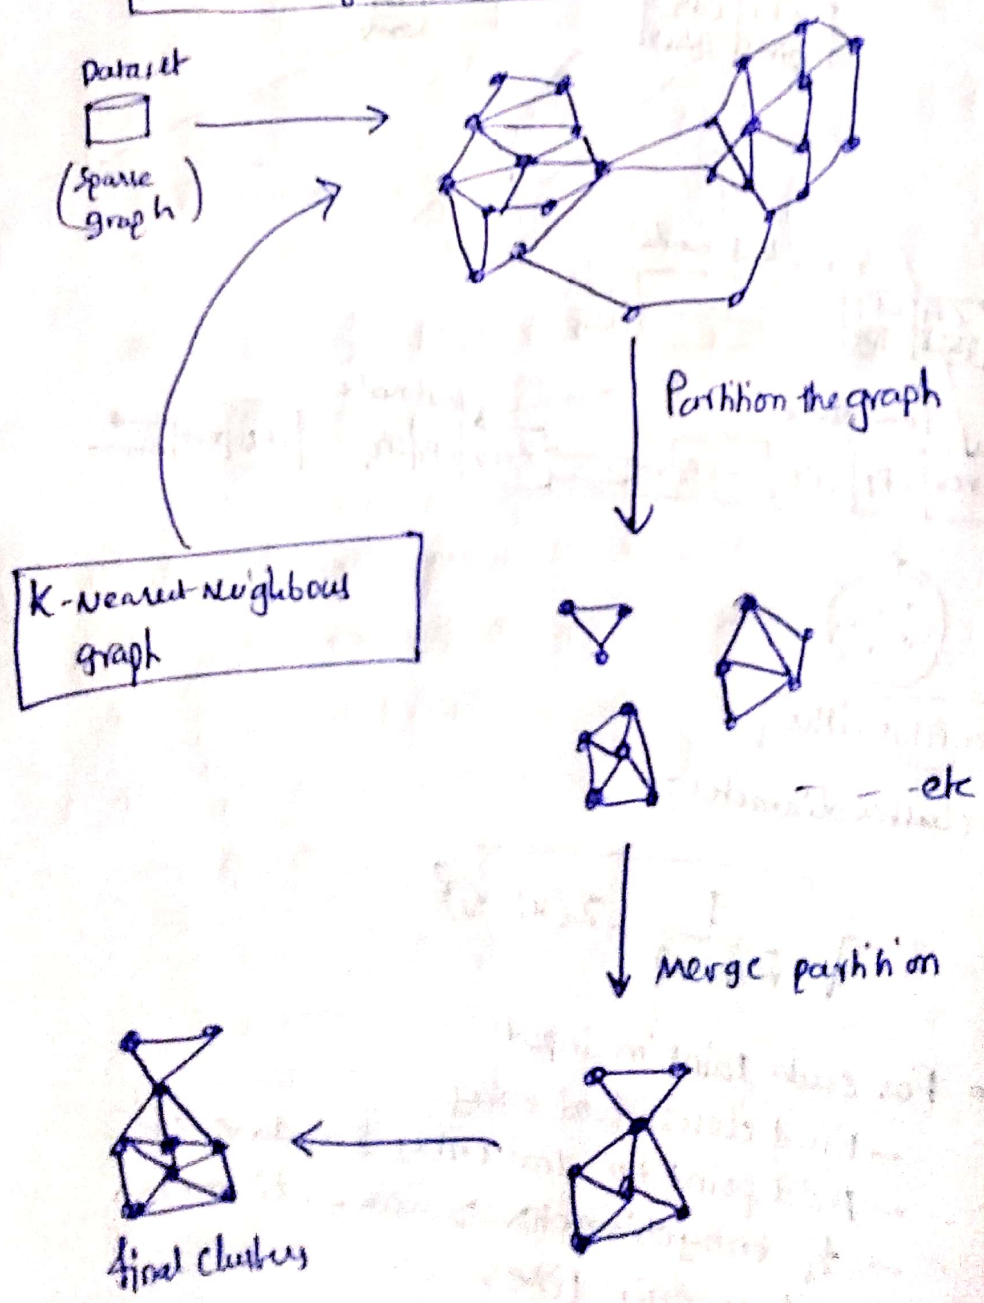 Dataset
(Sparse
graph)
Partition the graph
K-Nearest-Neighbous
graph
- - -etc
Merge partition
final clusters